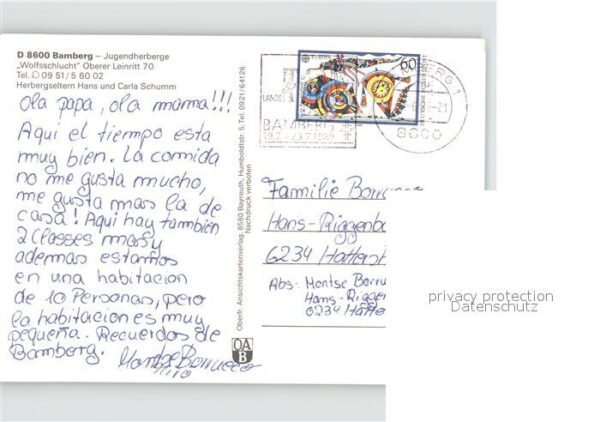 D 8600 Bamberg – Jugendherberge
„Wolfsschlucht" Oberer Leinritt 70
Tel. 09 51/5 60 02
Herbergseltern Hans und Carla Schumm
Ola papa, ola mama!!!
Aqui el tiempo esta
muy bien. La comida
no me gusta mucho,
me gusta mas la de
casa! Aqui hay también
2 classes mas y
ademas estamos
en una habitacion
de 10 Personas, pero
la habitacion es muy
pequeña. Recuerdos de
Bamberg.
Montse Borrueco
Oberfr. Ansichtskartenverlag, 8580 Bayreuth, Humboldtstr. 5, Tel. 0921/64126
Nachdruck verboten
OA
B
EUROPA
60
BAMBERG
8600
BERG 1
Familie Borrueco
Hans-Riggenba
6234 Hattersh
Abs: Montse Borru
Hans-Rigger
6234 Hatte
privacy protection
Datenschutz